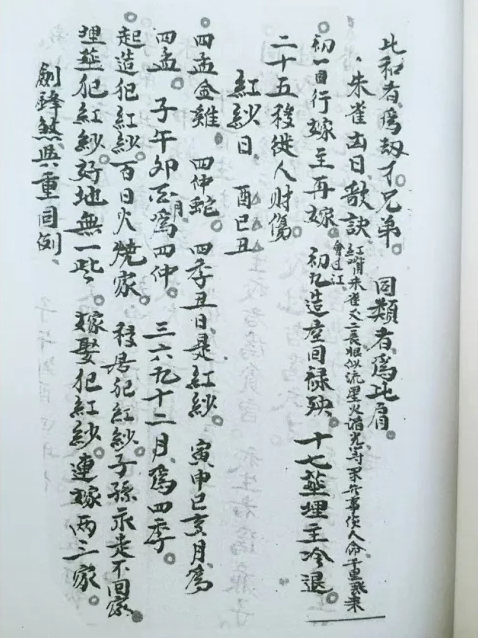 比和者為劫才兄弟。同類者為比肩。
朱雀出日歌訣
初一日行嫁主再嫁。初九造屋回祿殃 十七葬埋主冷退
二十五移徙人財傷
紅紗日 酉巳丑
四孟金雞 四仲蛇 四季丑日是紅紗 寅申巳亥月為
四孟。子午卯酉月為四仲 三六九十二月為四季。
起造犯紅紗百日火燒家。移居犯紅紗子孫永走不回家。
埋葬犯紅紗好地無一些 嫁娶犯紅紗連嫁兩三家
劍鋒煞與重同例